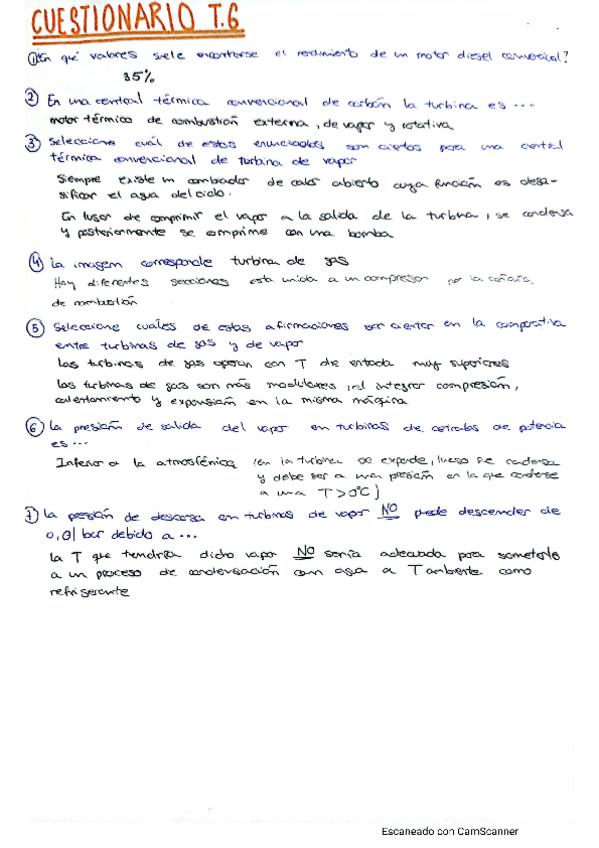 CUESTIONARIO T.6
① En qué valores suele encontrarse el rendimiento de un motor diesel comercial?
35%
② En una central térmica convencional de carbón la turbina es ...
motor térmico de combustión externa, de vapor y rotativa
③ Seleccione cuál de estos enunciados son ciertos para una central
térmica convencional de turbina de vapor
Siempre existe un cambiador de calor abierto cuya función es desga-
sificar el agua del ciclo.
En lugar de comprimir el vapor a la salida de la turbina, se condensa
y posteriormente se comprime con una bomba
④ La imagen corresponde turbina de gas
Hay diferentes secciones esta unida a un compresor por la cámara
de combustión
⑤ Seleccione cuales de estas afirmaciones son ciertas en la comparativa
entre turbinas de gas y de vapor
Las turbinas de gas operan con T de entrada muy superiores
Las turbinas de gas son más modulares, al integrar compresión,
calentamiento y expansión en la misma máquina
⑥ La presión de salida del vapor en turbinas de centrales de potencia
es ...
Inferior a la atmosférica (en la turbina se expande, luego se condensa
y debe ser a una presión en la que condense
a una T>0°C)
⑦ La presión de descarga en turbinas de vapor NO puede descender de
0,01 bar debido a ...
La T que tendría dicho vapor NO sería adecuada para someterlo
a un proceso de condensación con agua a T ambiente como
refrigerante
Escaneado con CamScanner